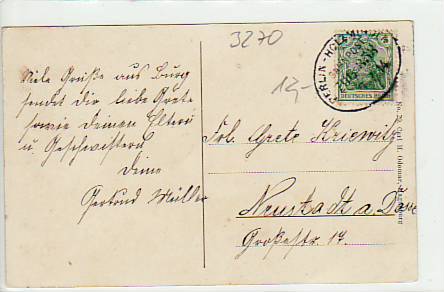 3270
12,-
Viele Grüße aus Burg
sendet Dir liebe Grete
sowie deinen Eltern
u. Geschwistern
Deine
Gertrud Müller
BERLIN-HOLZMIN
DEUTSCHES
Grete Kriewitz
Neustadt a. Dosse
Großestr. 17.